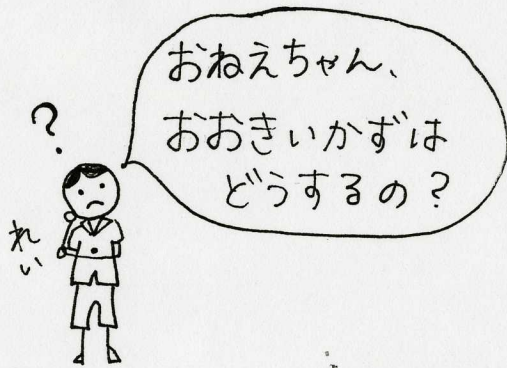 おねえちゃん、
おおきいかずは
どうするの?
?
れい